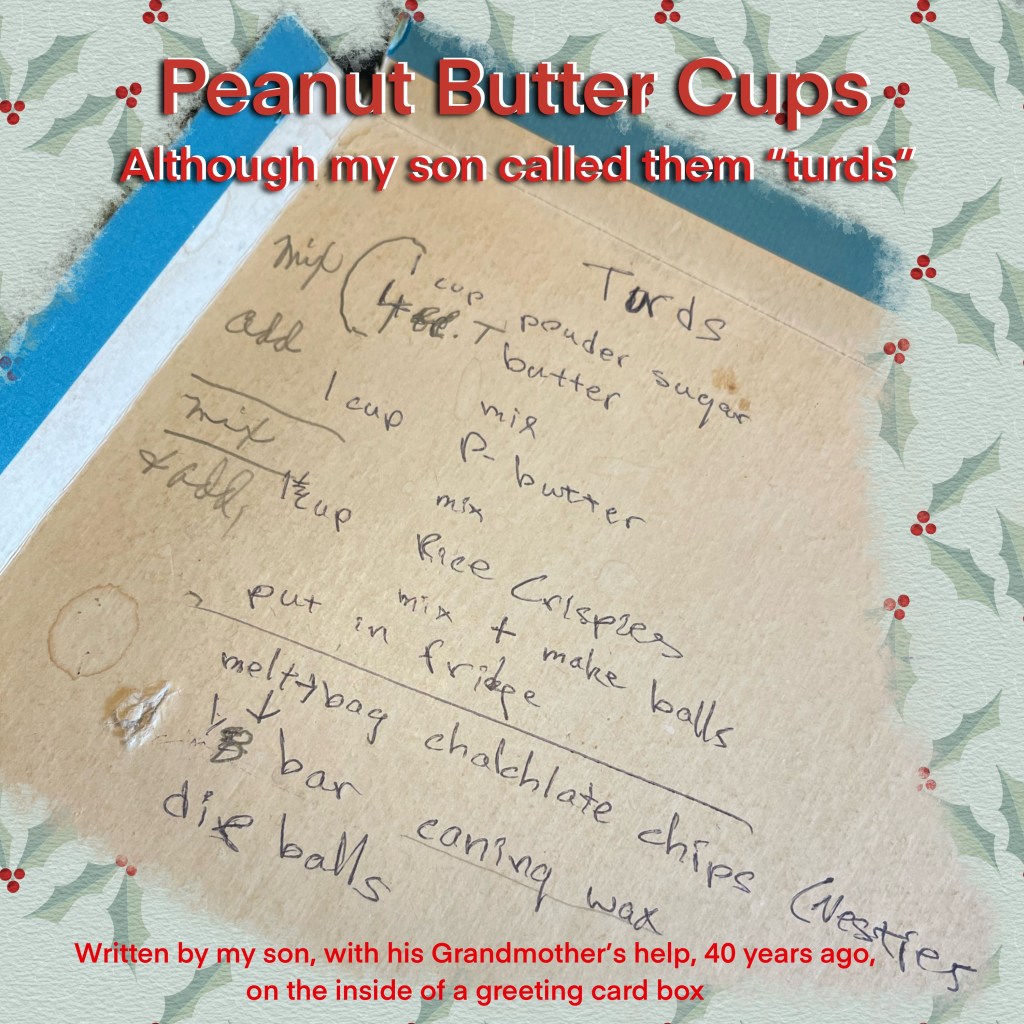 Peanut Butter Cups
Although my son called them “turds”
Turds
mix ( 1 cup pouder sugar
4 T butter
add mix
1 cup P-butter
mix mix
& add 1 1/2 cup Rice Crispies
mix + make balls
put in fridge
melt 1 bag chalchlate chips (Nestles
1/ bar caning wax
dip balls
Written by my son, with his Grandmother’s help, 40 years ago,
on the inside of a greeting card box